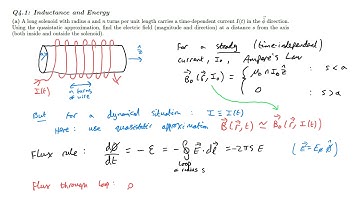 Q4.1: Inductance and Energy
(a) A long solenoid with radius a and n turns per unit length carries a time-dependent current I(t) in the φ̂ direction.
Using the quasistatic approximation, find the electric field (magnitude and direction) at a distance s from the axis
(both inside and outside the solenoid).
For a steady (time-independent)
current, I₀, Ampere's Law
B⃗₀(r⃗, I₀) = { μ₀ n I₀ ẑ : s < a
0 : s > a
ẑ
I(t)
n turns
of wire
But For a dynamical situation : I ≡ I(t)
Here : use quasistatic approximation B⃗(r⃗,t) ≃ B⃗₀(r⃗, I(t))
Flux rule : dΦ/dt = - ε = - ∮ E⃗ · dℓ⃗ = - 2πs E (E⃗ = E_φ φ̂)
loop
radius s
Flux through loop :